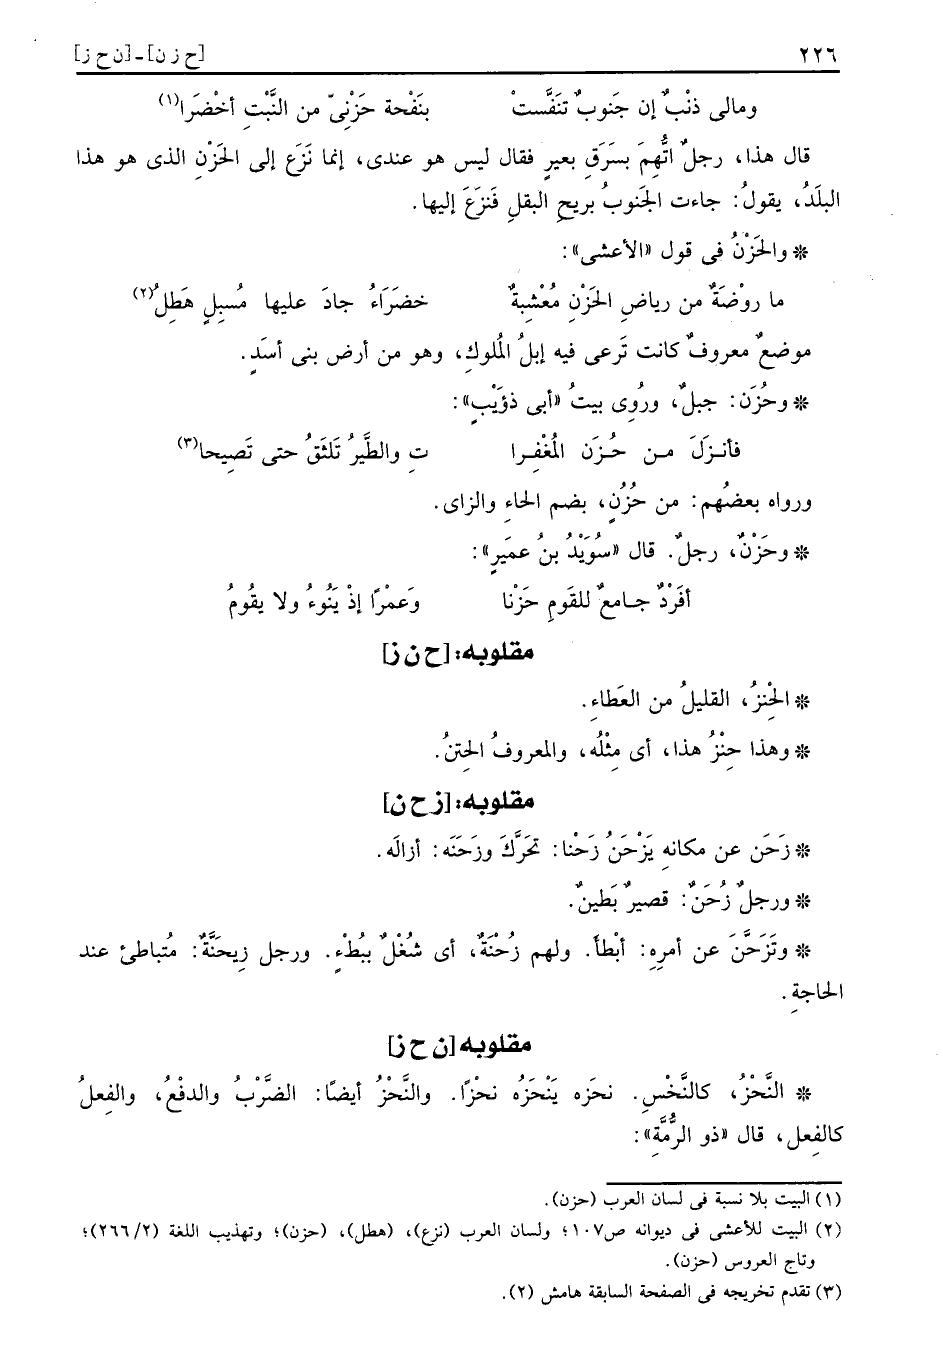 ٢٢٦ [ح ز ن] ـ [ن ح ز]
ومالى ذنْبٌ إن جَنوبٌ تنَفَّستْ بنَفْحة حَزْنِىّ من النَّبْتِ أخْضَرَا(١)
قال هذا، رجلٌ اتُّهِمَ بسَرَقِ بعيرٍ فقال ليس هو عندى، إنما نَزَع إلى الحَزْنِ الذى هو هذا
البلَدُ، يقولُ: جاءت الجَنوبُ بريحِ البقلِ فَنزَعَ إليها.
* والحَزْنُ فى قول «الأعشى»:
ما روْضَةٌ من رياضِ الحَزْنِ مُعْشبةٌ خضَرَاءُ جادَ عليها مُسبِلٍ هَطِلُ(٢)
موضعٌ معروفٌ كانت تَرعى فيه إبلُ المُلوكِ، وهو من أرض بنى أسَدٍ.
* وحُزَن: جبلٌ، ورُوِى بيتُ «أبى ذؤَيْبٍ»:
فأنـزَلَ مـن حُـزَن المُغْفِـرا تِ والطَّيرُ تَلثَقُ حتى تَصيحا(٣)
ورواه بعضُهم: من حُزُنٍ، بضم الحاءِ والزاى.
* وحَزْنٌ، رجلٌ. قال «سُوَيْدُ بنُ عميَرٍ»:
أفَرْدٌ جـامعٌ للقَومِ حَزْنا وَعمْرًا إذْ يَنُوءُ ولا يقومُ
مقلوبه: [ح ن ز]
* الحِْنزُ، القليلُ من العَطاءِ.
* وهذا حِنْزُ هذا، أى مِثْلُه، والمعروفُ الحِتنُ.
مقلوبه: [ز ح ن]
* زَحَن عن مكانِه يَزْحَنُ زَحْنا: تحَرَّكَ وزَحَنَه: أزالَه.
* ورجلٌ زُحَنٌ: قصيرٌ بَطينٌ.
* وتَزَحَّنَ عن أمرِهِ: أبْطأ. ولهم زُحْنَةٌ، أى شُغْلٌ ببُطْءٍ. ورجل زِيحَنَّةٌ: مُتباطئ عند
الحاجةِ.
مقلوبه [ن ح ز]
* النَّحْزُ، كالنَّخْسِ. نحَزه يَنْحَزُه نحْزًا. والنَّحْزُ أيضًا: الضَّرْبُ والدفْعُ، والفِعلُ
كالفِعل، قال «ذو الرُّمَّةِ»:
(١) البيت بلا نسبة فى لسان العرب (حزن).
(٢) البيت للأعشى فى ديوانه ص١٠٧؛ ولسان العرب (نزع)، (هطل)، (حزن)؛ وتهذيب اللغة (٢/ ٢٦٦)؛
وتاج العروس (حزن).
(٣) تقدم تخريجه فى الصفحة السابقة هامش (٢).